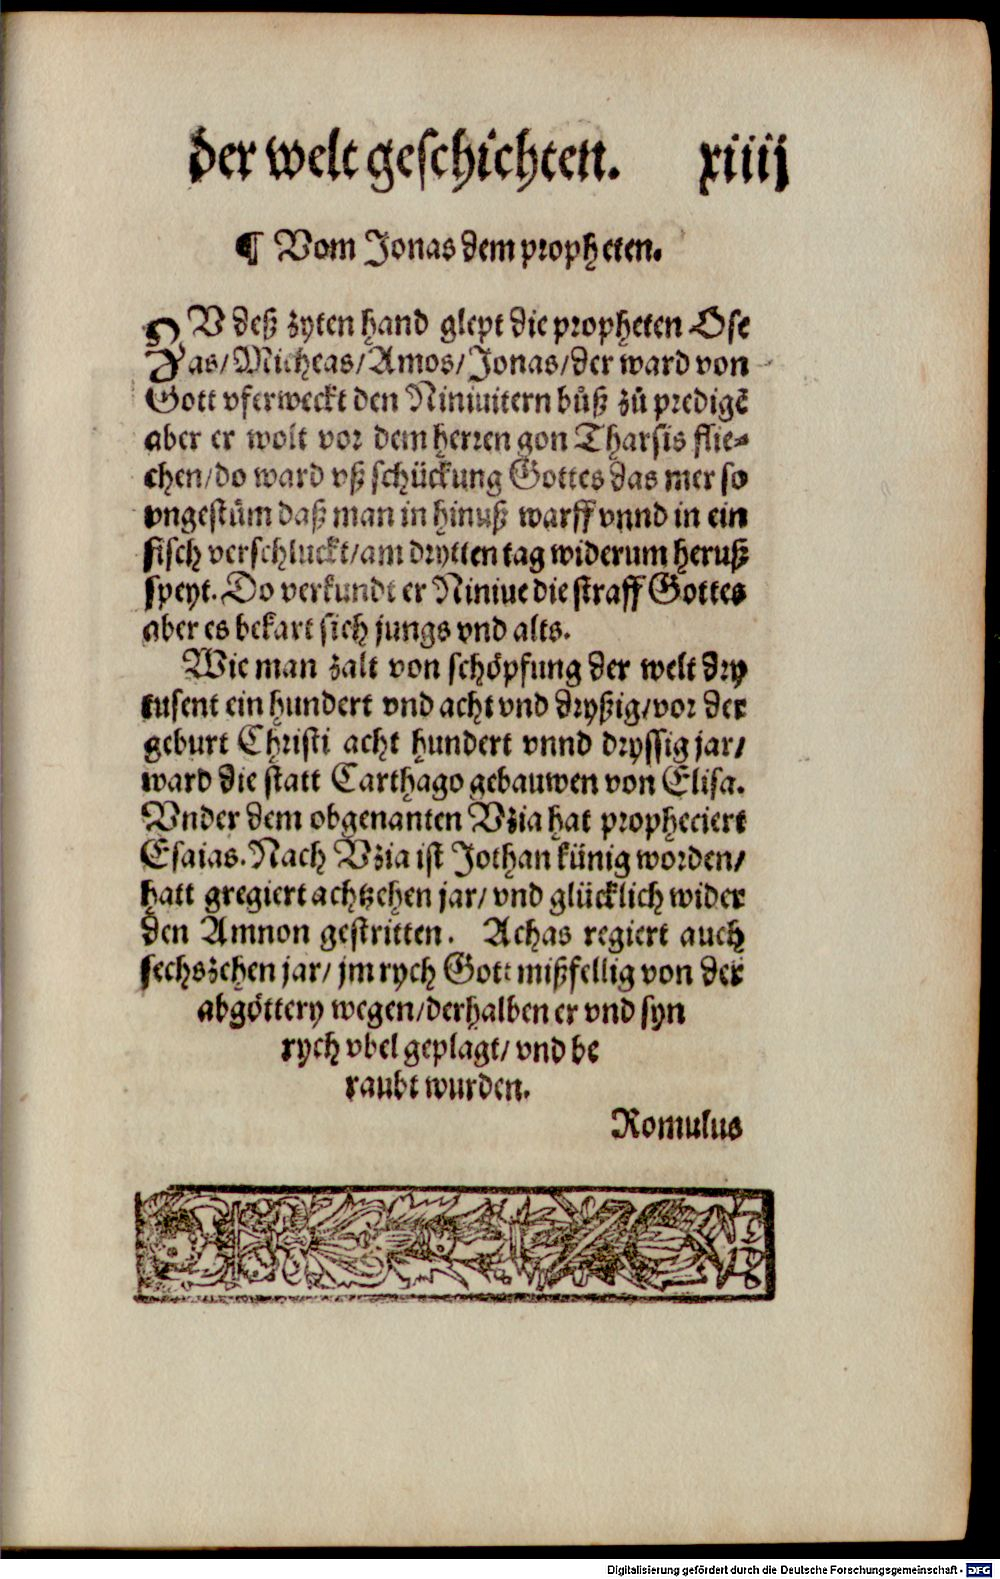 der welt geschichten. xiiij
¶ Vom Jonas dem propheten.
ZV deß zyten hand glept die propheten Ose
as/Micheas/Amos/Jonas/der ward von
Gott vferweckt den Niniuitern bůß zů predigē
aber er wolt vor dem herren gon Tharsis flie⸗
chen/do ward vß schückung Gottes das mer so
vngestüm daß man in hinuß warff vnnd in ein
fisch verschluckt/am drytten tag widerum heruß
speyt. Do verkundt er Niniue die straff Gottes
aber es bekart sich jungs vnd alts.
Wie man zalt von schöpfung der welt dry
tusent ein hundert vnd acht vnd dryßig/vor der
geburt Christi acht hundert vnnd dryssig jar/
ward die statt Carthago gebauwen von Elisa.
Vnder dem obgenanten Vzia hat propheciert
Esaias. Nach Vzia ist Jothan künig worden/
hatt gregiert achtzehen jar/ vnd glücklich wider
den Amnon gestritten. Achas regiert auch
sechszehen jar/ jm rych Gott mißfellig von der
abgöttery wegen/derhalben er vnd syn
rych vbel geplagt/ vnd be
raubt wurden.
Romulus
Digitalisierung gefördert durch die Deutsche Forschungsgemeinschaft - DFG